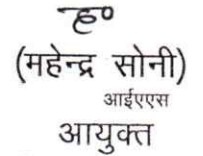 (महेन्द्र सोनी)
आईएएस
आयुक्त